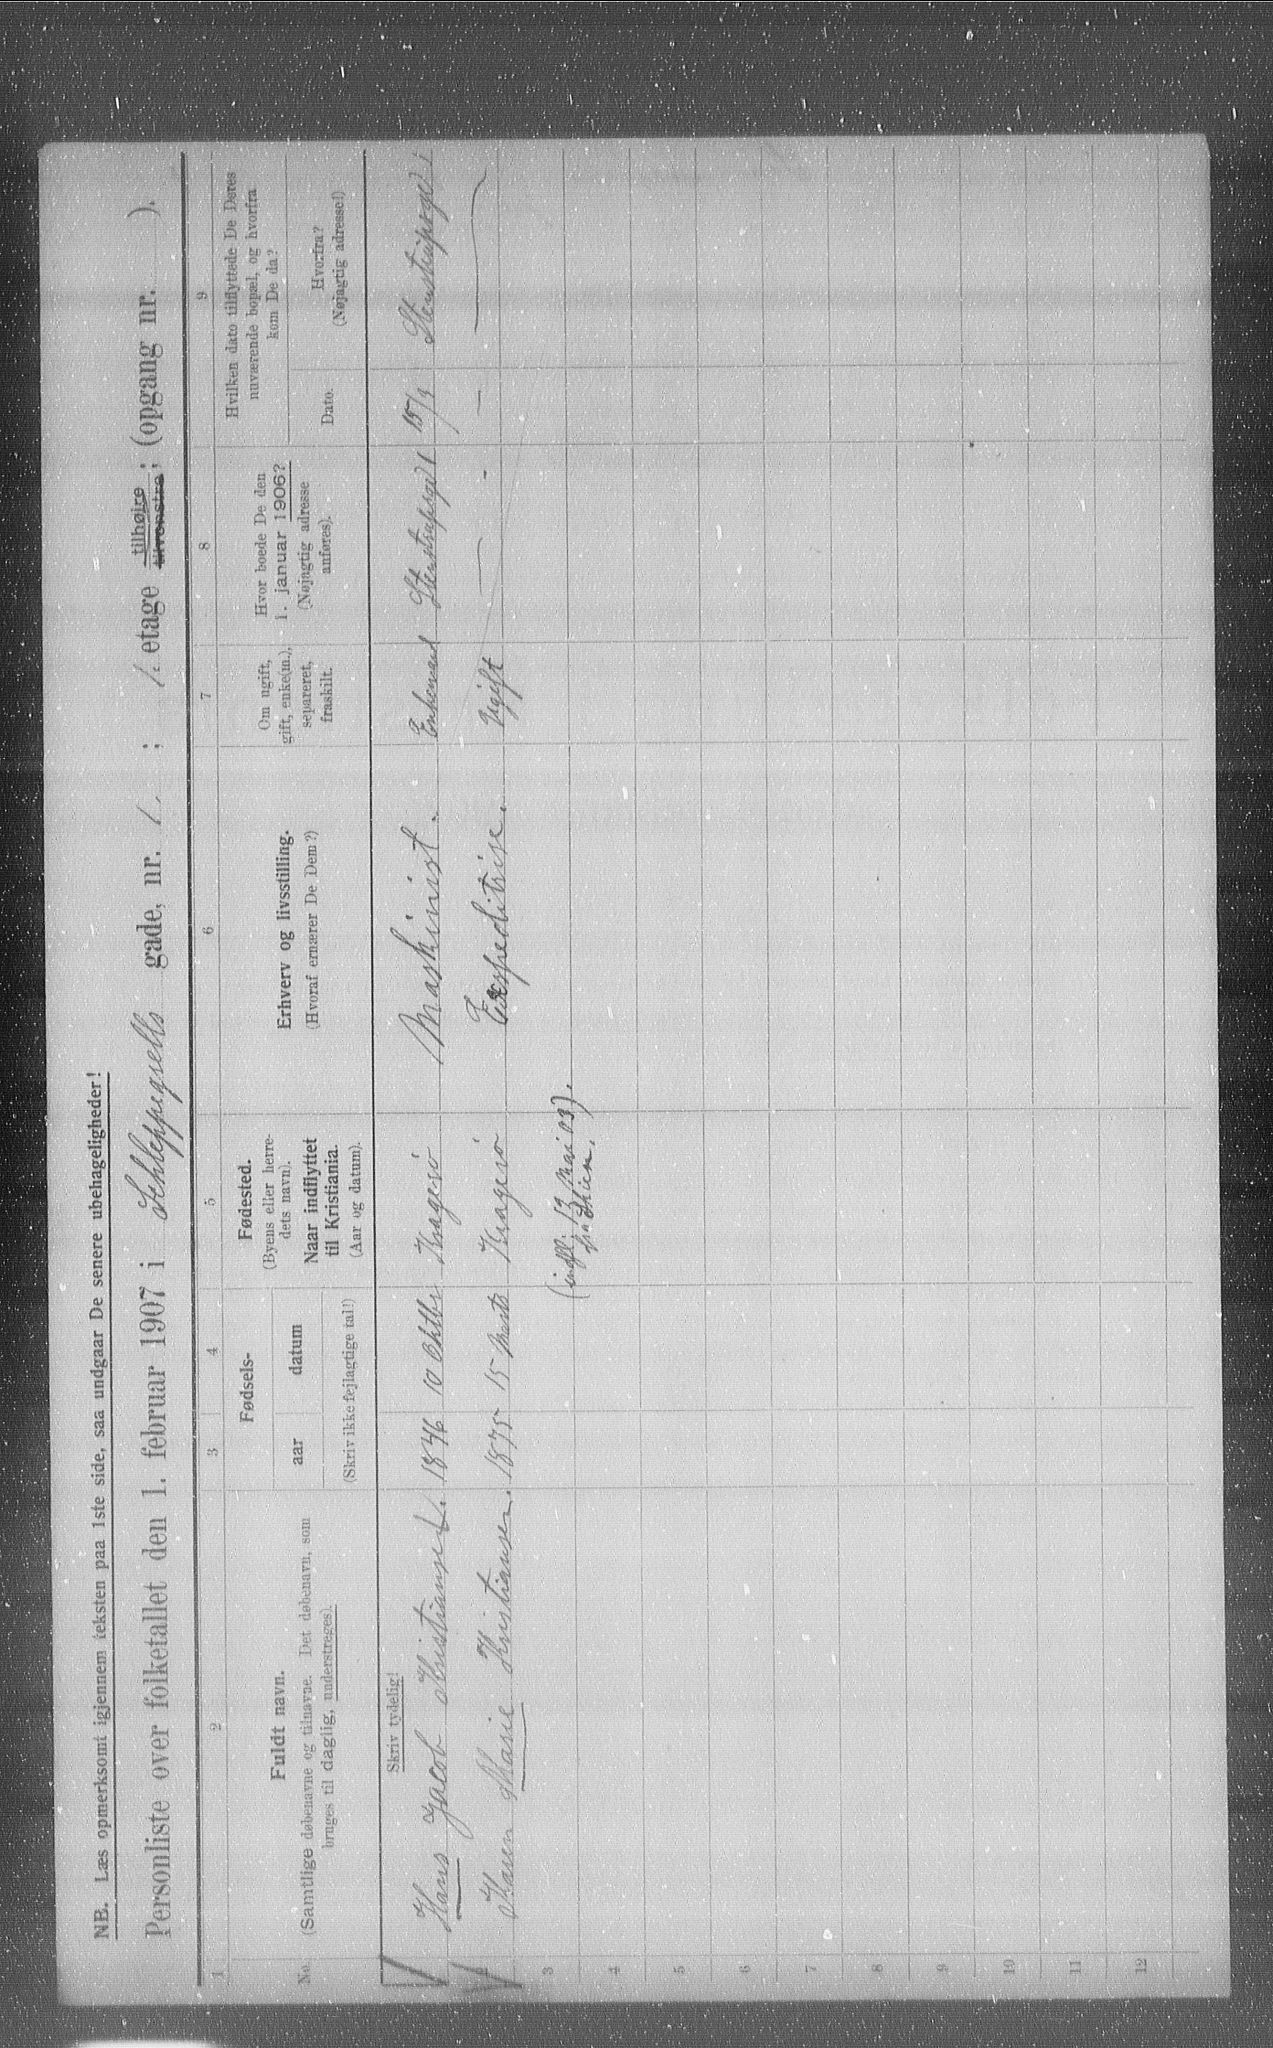 NB. Læs opmerksomt igjennem teksten paa 1ste side, saa undgaar De senere ubehageligheder!
Personliste over folketallet den 1. februar 1907 i Schleppegrells gade, nr. 1. ; 1. etage tilhøire tilvenstre; (opgang nr. ).
1 2 3 4 5 6 7 8 9
No.
Fuldt navn.
(Samtlige døbenavne og tilnavne. Det døbenavn, som
bruges til daglig, understreges).
Fødsels-
aar datum
(Skriv ikke fejlagtige tal!)
Fødested.
(Byens eller herre-
dets navn).
Naar indflyttet
til Kristiania.
(Aar og datum).
Erhverv og livsstilling.
(Hvoraf ernærer De Dem?)
Om ugift,
gift, enke(m.),
separeret,
fraskilt.
Hvor boede De den
1. januar 1906?
(Nøjagtig adresse
anføres).
Hvilken dato tilflyttede De Deres
nuværende bopæl, og hvorfra
kom De da?
Dato.
Hvorfra?
(Nøjagtig adresse!)
Skriv tydelig!
Hans Jacob Kristiansen. 1846 10 Oktbr Kragerø Maskinist. Enkemand Stenstrupsgd 1 15/9 Stenstrupsgd 1
2 Karen Marie Kristiansen. 1875 15 Marts Kragerø Expeditrise. Ugift — - — —
3 (indfl. 13 Mai 03).
fra Skien.
4
5
6
7
8
9
10
11
12